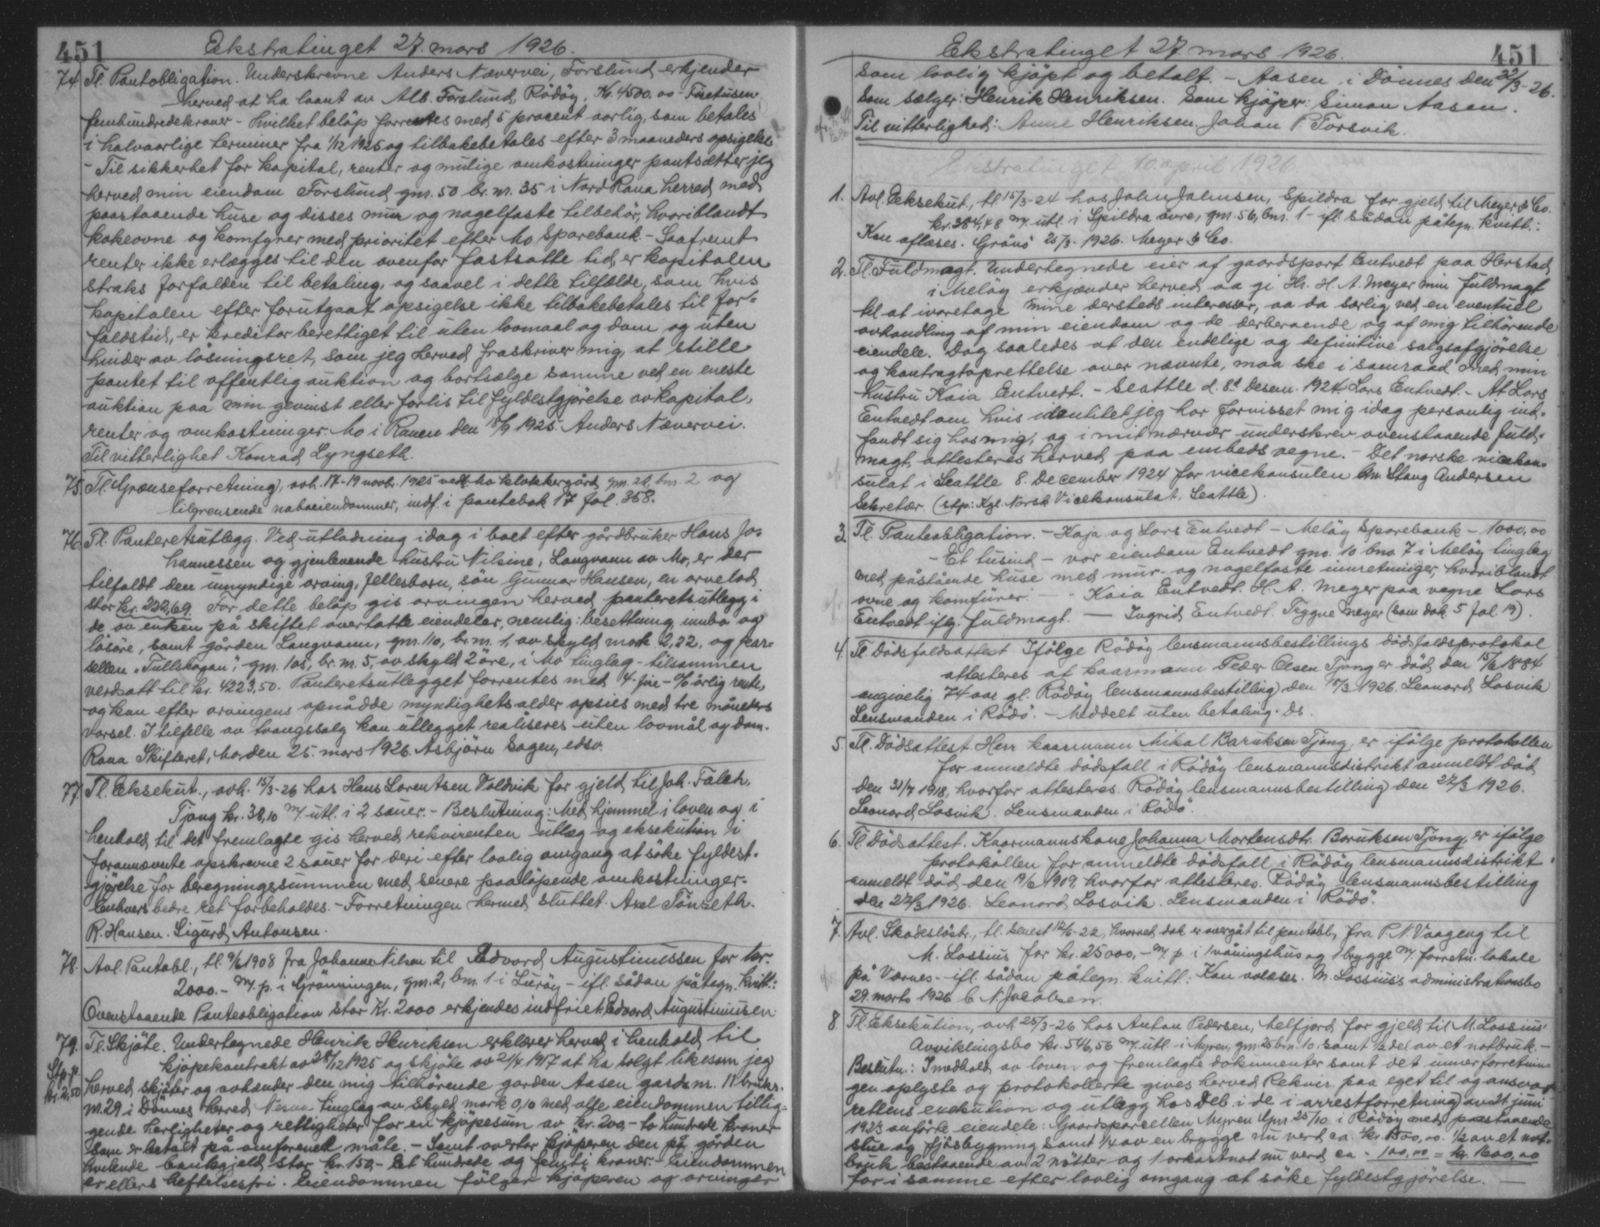 451
Ekstratinget 27. mars 1926.
74. Tl. Pantobligation. Underskrevne Anders Nævervei, Forslund, erkjender
herved at ha laant av Alb. Forslund, Rödöy, Kr. 4500.00 - Firetusen
femhundredekroner - hvilket belöp forrentes med 5 procent aarlig, som betales
i halvaarlige terminer fra 1/12 1925 og tilbakebetales efter 3 maaneders opsigelse.
- Til sikkerhet for kapital, renter og mulige omkostninger pantsætter jeg
herved min eiendom Forslund gnr. 50 br. nr. 35 i Nord Rana herred med
paastaaende huse og disses mur og nagelfaste tilbehör, hvoriblandt
kakeovne og komfyrer med prioritet efter Mo Sparebank - Saafremt
renter ikke erlægges til den ovenfor fastsatte tid, er kapitalen
straks forfalden til betaling, og saavel i dette tilfælde, som hvis
kapitalen efter forutgaat opsigelse ikke tilbakebetales til for-
faldstid, er kreditor berettiget til uten lovmaal og dom og uten
hinder av lösningsret, som jeg herved fraskriver mig, at stille
pantet til offentlig auktion og bortsælge samme ved en eneste
auktion paa min gevinst eller forlis til fyldestgjörelse av kapital,
renter og omkostninger. Mo i Ranen den 1925 Anders Nævervei.
Til vitterlighet Konrad Lyngseth.
75. Tl. Grænseforretning, avh. 17-19 novb. 1925 ved Mo klokkergård, gnr. 20, bnr. 2 og
tilgrensende naboeiendommer, indf. i pantebok 17 fol. 358.
76. Tl. Panteretsutlegg. Ved utlodning idag i boet efter gårdbruker Hans Jo-
hannessen og gjenlevende hustru Nilsine, Langvann av Mo, er der
tilfaldt den umyndige arving, fellesbarn, sön Gunnar Hansen, en arvelod
stor kr. 232,69. For dette belöp gis arvingen herved panteretsutlegg i
de av enken på skiftet overtatte eiendeler, nemlig: besetning, innbo og
lösöre, samt gården Langvann, gnr. 10, br. nr. 1, av skyld mark 2,22, og par-
sellen "Tullskogan", gnr. 108, br. nr. 5, av skyld 2 öre, i Mo tinglag - tilsammen
verdsatt til kr. 4223,50. Panteretsutlegget forrentes med 4 - fire - % årlig rente,
og kan efter arvingens opnådde myndighetsalder opsies med tre måneders
varsel. I tilfelle av tvangssalg kan utlegget realiseres uten lovmål og dom.
Rana Skifteret, Mo, den 25. mars 1926. Asbjörn Sagen, edsv.
77. Tl. Eksekut., avh. 15/3-26 hos Hans Lorentsen Valdvik for gjeld til Joh. Falch,
Tjong kr. 38,10 m/ utl. i 2 sauer. - Beslutning: Med hjemmel i loven og i
henhold til det fremlagte gis herved rekvirenten utlæg og eksekution i
forannævnte opskrevne 2 sauer for deri efter lovlig omgang at söke fyldest-
gjörelse for beregningssummen med senere paalöpende omkostninger.
Enhvers bedre ret forbeholdes. - Forretningen hermed sluttet. Axel Tönseth.
R. Hansen. Sigurd Antonsen.
78. Avl. Pantobl., tl. 9/6 1908 fra Johannes Nilsen til Edvard Augustinussen for kr.
2000.- m/ p. i Grönningen, gnr. 2, bnr. 1 i Luröy - ifl. sådan påtegn. kvitt.:
Ovenstaaende Panteobligation stor Kr. 2000 erkjendes indfriet. Edvard Augustinusen
79. Tl. Skjöte. Undertegnede Henrik Henriksen erklærer herved i henhold til
St.p. kjöpekontrakt av 28/12 1925 og skjöte av 21/4 1917 at ha solgt likesom jeg
kr. 2,50 herved skjöter og avhænder den mig tilhörende gården Aasen gardsnr. 11 bruks-
nr. 29 i Dönnes herred Nesna tinglag av skyld mark 0,10 med alle eiendommen tillig-
gende herligheter og rettigheter for en kjöpesum av kr. 200,- to hundrede kroner
som er betalt på omforenet måte. - Samt overtar kjöperen den på gården
hvilende bankgjeld stor kr. 150,- Et hundrede og femti kroner. Eiendommen
er ellers heftelsesfri. Eiendommen fölger kjöperen og arvinger
Ekstratinget 27 mars 1926.
451
som lovlig kjöpt og betalt. - Aasen i Dönnes den 22/3-26.
Som sælger: Henrik Henriksen. Som kjöper: Simon Aasen.
Til vitterlighed: Anne Henriksen. Johan P. Forsvik.
Ekstratinget 10. april 1926
1. Avl. Eksekut., tl. 15/3-24 hos John Johnsen, Spildra for gjeld til Meyer & Co.
kr. 384,48 m/ utl. i Spildra övre, gnr. 56, bnr. 1 - ifl. sådan påtegn. kvitt.:
Kan aflæses. Grönö 25/3. 1926. Meyer & Co.
2. Tl. Fuldmagt. Undertegnede eier af gaardspart Entvedt paa Herstad
i Melöy erkjender herved aa gi Hr. H. A. Meyer min fuldmagt
til at ivaretage mine dersteds interesser, aa da særlig ved en eventuel
avhandling af min eiendom og de derberoende og af mig tilhörende
eiendele. Dog saaledes at den endelige og definitive salgsafgjörelse
og kontraktoprettelse over nævnte, maa ske i samraad med min
hustru Kaia Entvedt. - Seattle d. 8de Desem. 1924. Lars Entvedt. - At Lars
Entvedt om hvis identitet jeg har forvisset mig idag personlig ind-
fandt sig hos mig, og i mit nærvær underskrev ovenstaaende fuld-
magt, attesteres herved paa embeds vegne. - Det norske vicekon-
sulat i Seattle 8. December 1924 for vicekonsulen Stang Andersen
Sekretær. (stp: Kgl. Norsk Vicekonsulat, Seattle).
3. Tl. Panteobligation. - Kaja og Lars Entvedt - Melöy Sparebank - 1000,00
- Et tusind - vor eiendom Entvedt gnr. 10 bnr. 7 i Melöy tinglag
med påstående huse med mur- og nagelfaste innretninger, hvoriblandt
ovne og komfürer. - Kaia Entvedt. H. A. Meyer paa vegne Lars
Entvedt iflg. fuldmagt. - Ingrid Entvedt. Trygve Meyer (som dok. 5 fol. 19).
4. Tl. Dödsfaldsattest Ifölge Rödöy lensmannsbestillings dödsfaldsprotokol
attesteres at kaarmann Peder Olsen Tjong er död den 15/6 1894
angivelig 74 aar gl. Rödöy lensmannsbestilling den 1926. Leonard Losvik
Lensmanden i Rödö. - Meddelt uten betaling. ds.
5. Tl. Dödsattest Herr kaarmann Mikal Baruksen Tjong, er ifölge protokollen
for anmeldte dödsfall i Rödöy lensmannsdistrikt anmeldt död
den 21/7 1918, hvorfor attesteres. Rödöy lensmannsbestilling den 27/3 1926.
Leonard Losvik. Lensmanden i Rödö.
6. Tl. Dödsattest. Kaarmannskone Johanna Mortensdtr. Baruksen Tjong, er ifölge
protokollen for anmeldte dödsfall i Rödöy lensmannsdistrikt
anmeldt död den 19/6 1909, hvorfor attesteres. Rödöy lensmannsbestilling
den 27/3 1926. Leonard Losvik. Lensmanden i Rödö.
7. Avl. Skadeslöstr., tl. senest 12/6-22, hvorved dok. er overgåt til pantobl., fra P. N. Vaageng til
M. Lossius for kr. 25000,- m/ p. i 1 våningshus og 1 brygge m/ forretn. lokale
på Værnes - ifl. sådan påtegn. kvitt. Kan avlæses. M. Lossius's administrationsbo
29. marts 1926 C. N. Jacobsen.
8. Tl. Eksekution, avh. 25/3-26 hos Anton Pedersen, Selfjord for gjeld til M. Lossius'
Avviklingsbo kr. 546,56 m/ utl. i Myren, gnr. 25 bnr. 10. samt 1/2 del av et notbruk -
Beslutn.: I medhold av loven og fremlagte dokumenter samt det under forretnin-
gen oplyste og protokollerte gives herved Rekvir. paa eget til og ansvar
rettens execution og utlegg hos Deb. i de i arrestforretning avh. juni
1923 anförte eiendele: Gaardsparcellen Myren Gnr. 25/10 i Rödöy med paastaaende
stue og fjösbygning samt 1/4 av en brygge nu verd ca. kr. 1500,00. 1/2 av et not-
bruk bestaaende av 2 nötter og 1 orkastnot nu verd ca. - 100,00 = kr. 1600,00
for i samme efter lovlig omgang at söke fyldestgjörelse. -